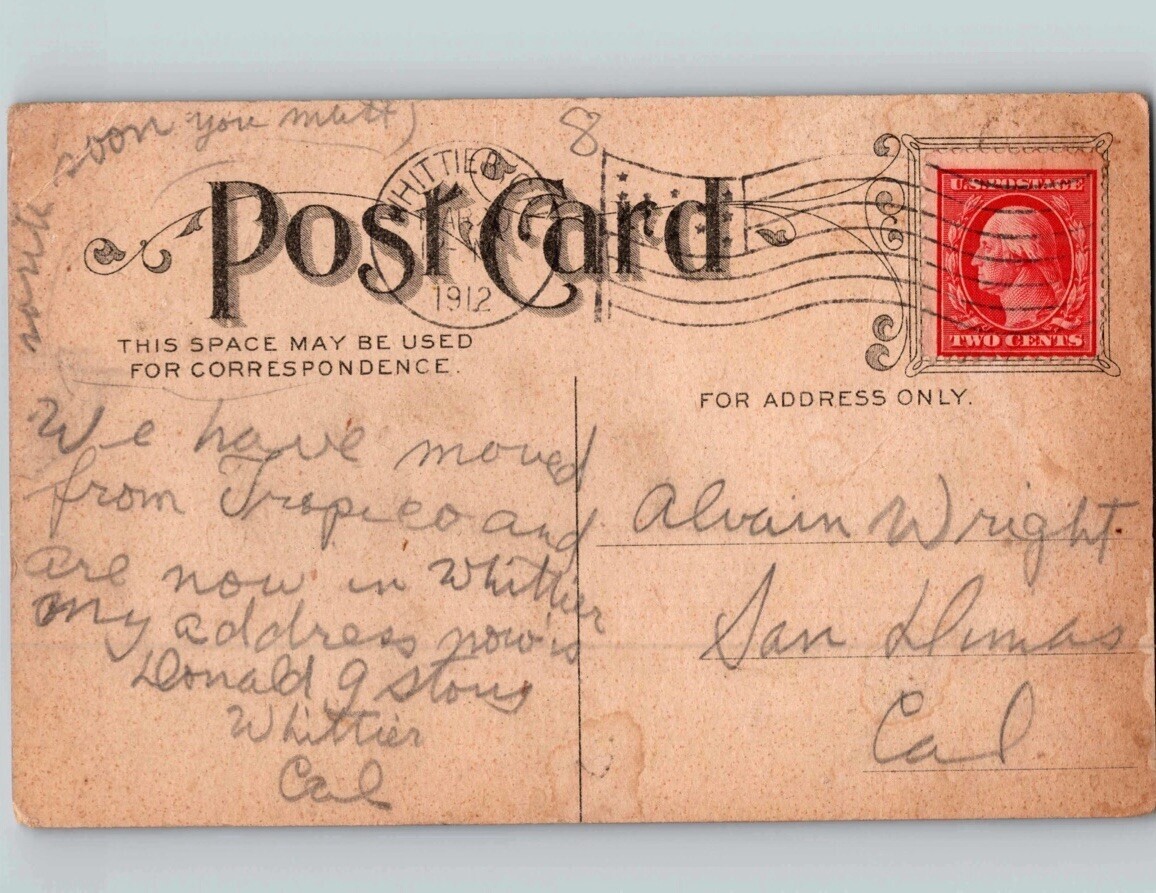 soon you must
8
Post Card
WHITTIER
1912
U.S. POSTAGE
TWO CENTS
THIS SPACE MAY BE USED
FOR CORRESPONDENCE.
FOR ADDRESS ONLY.
We have moved
from Tropico and
are now in Whittier
my address now is
Donald G
Whittier
Cal
Alvain Wright
San Dimas
Cal